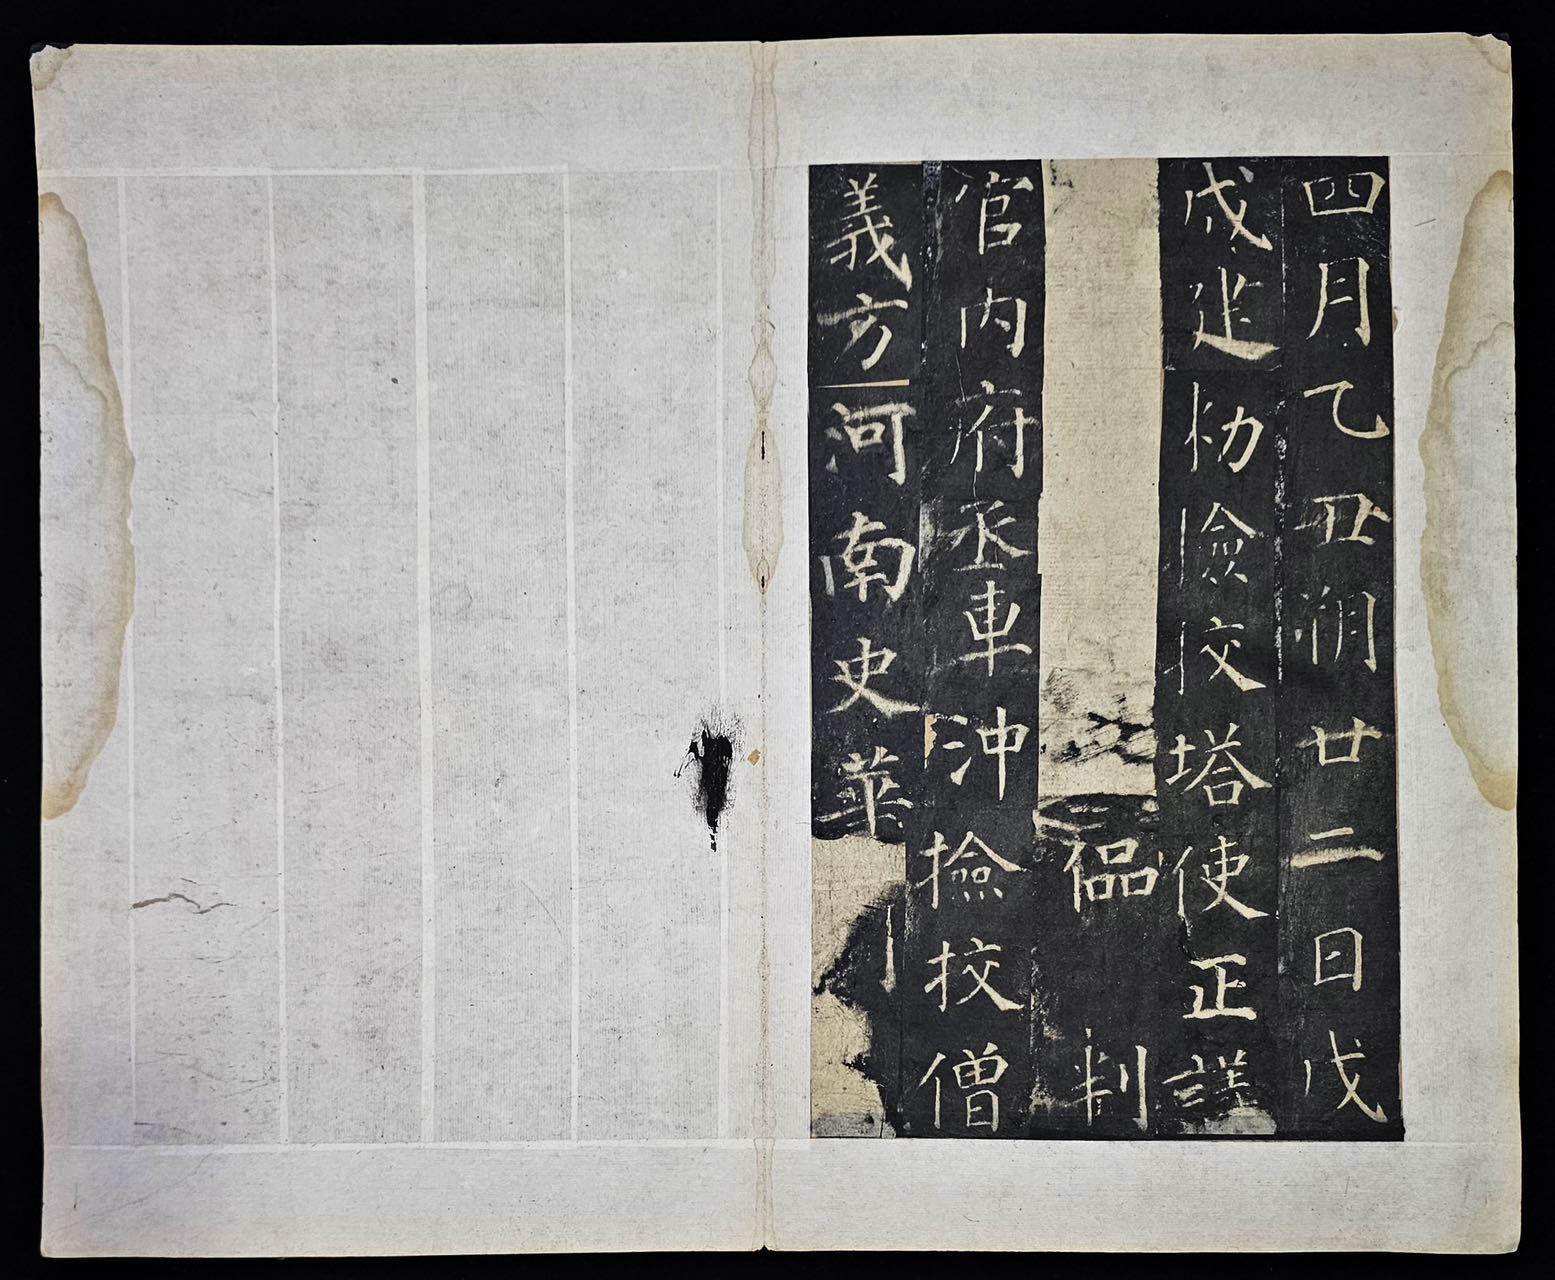 四月乙丑朔廿二日戊
戌建勑撿挍塔使正議
偘判
官内府丞車沖撿挍僧
義方河南史華